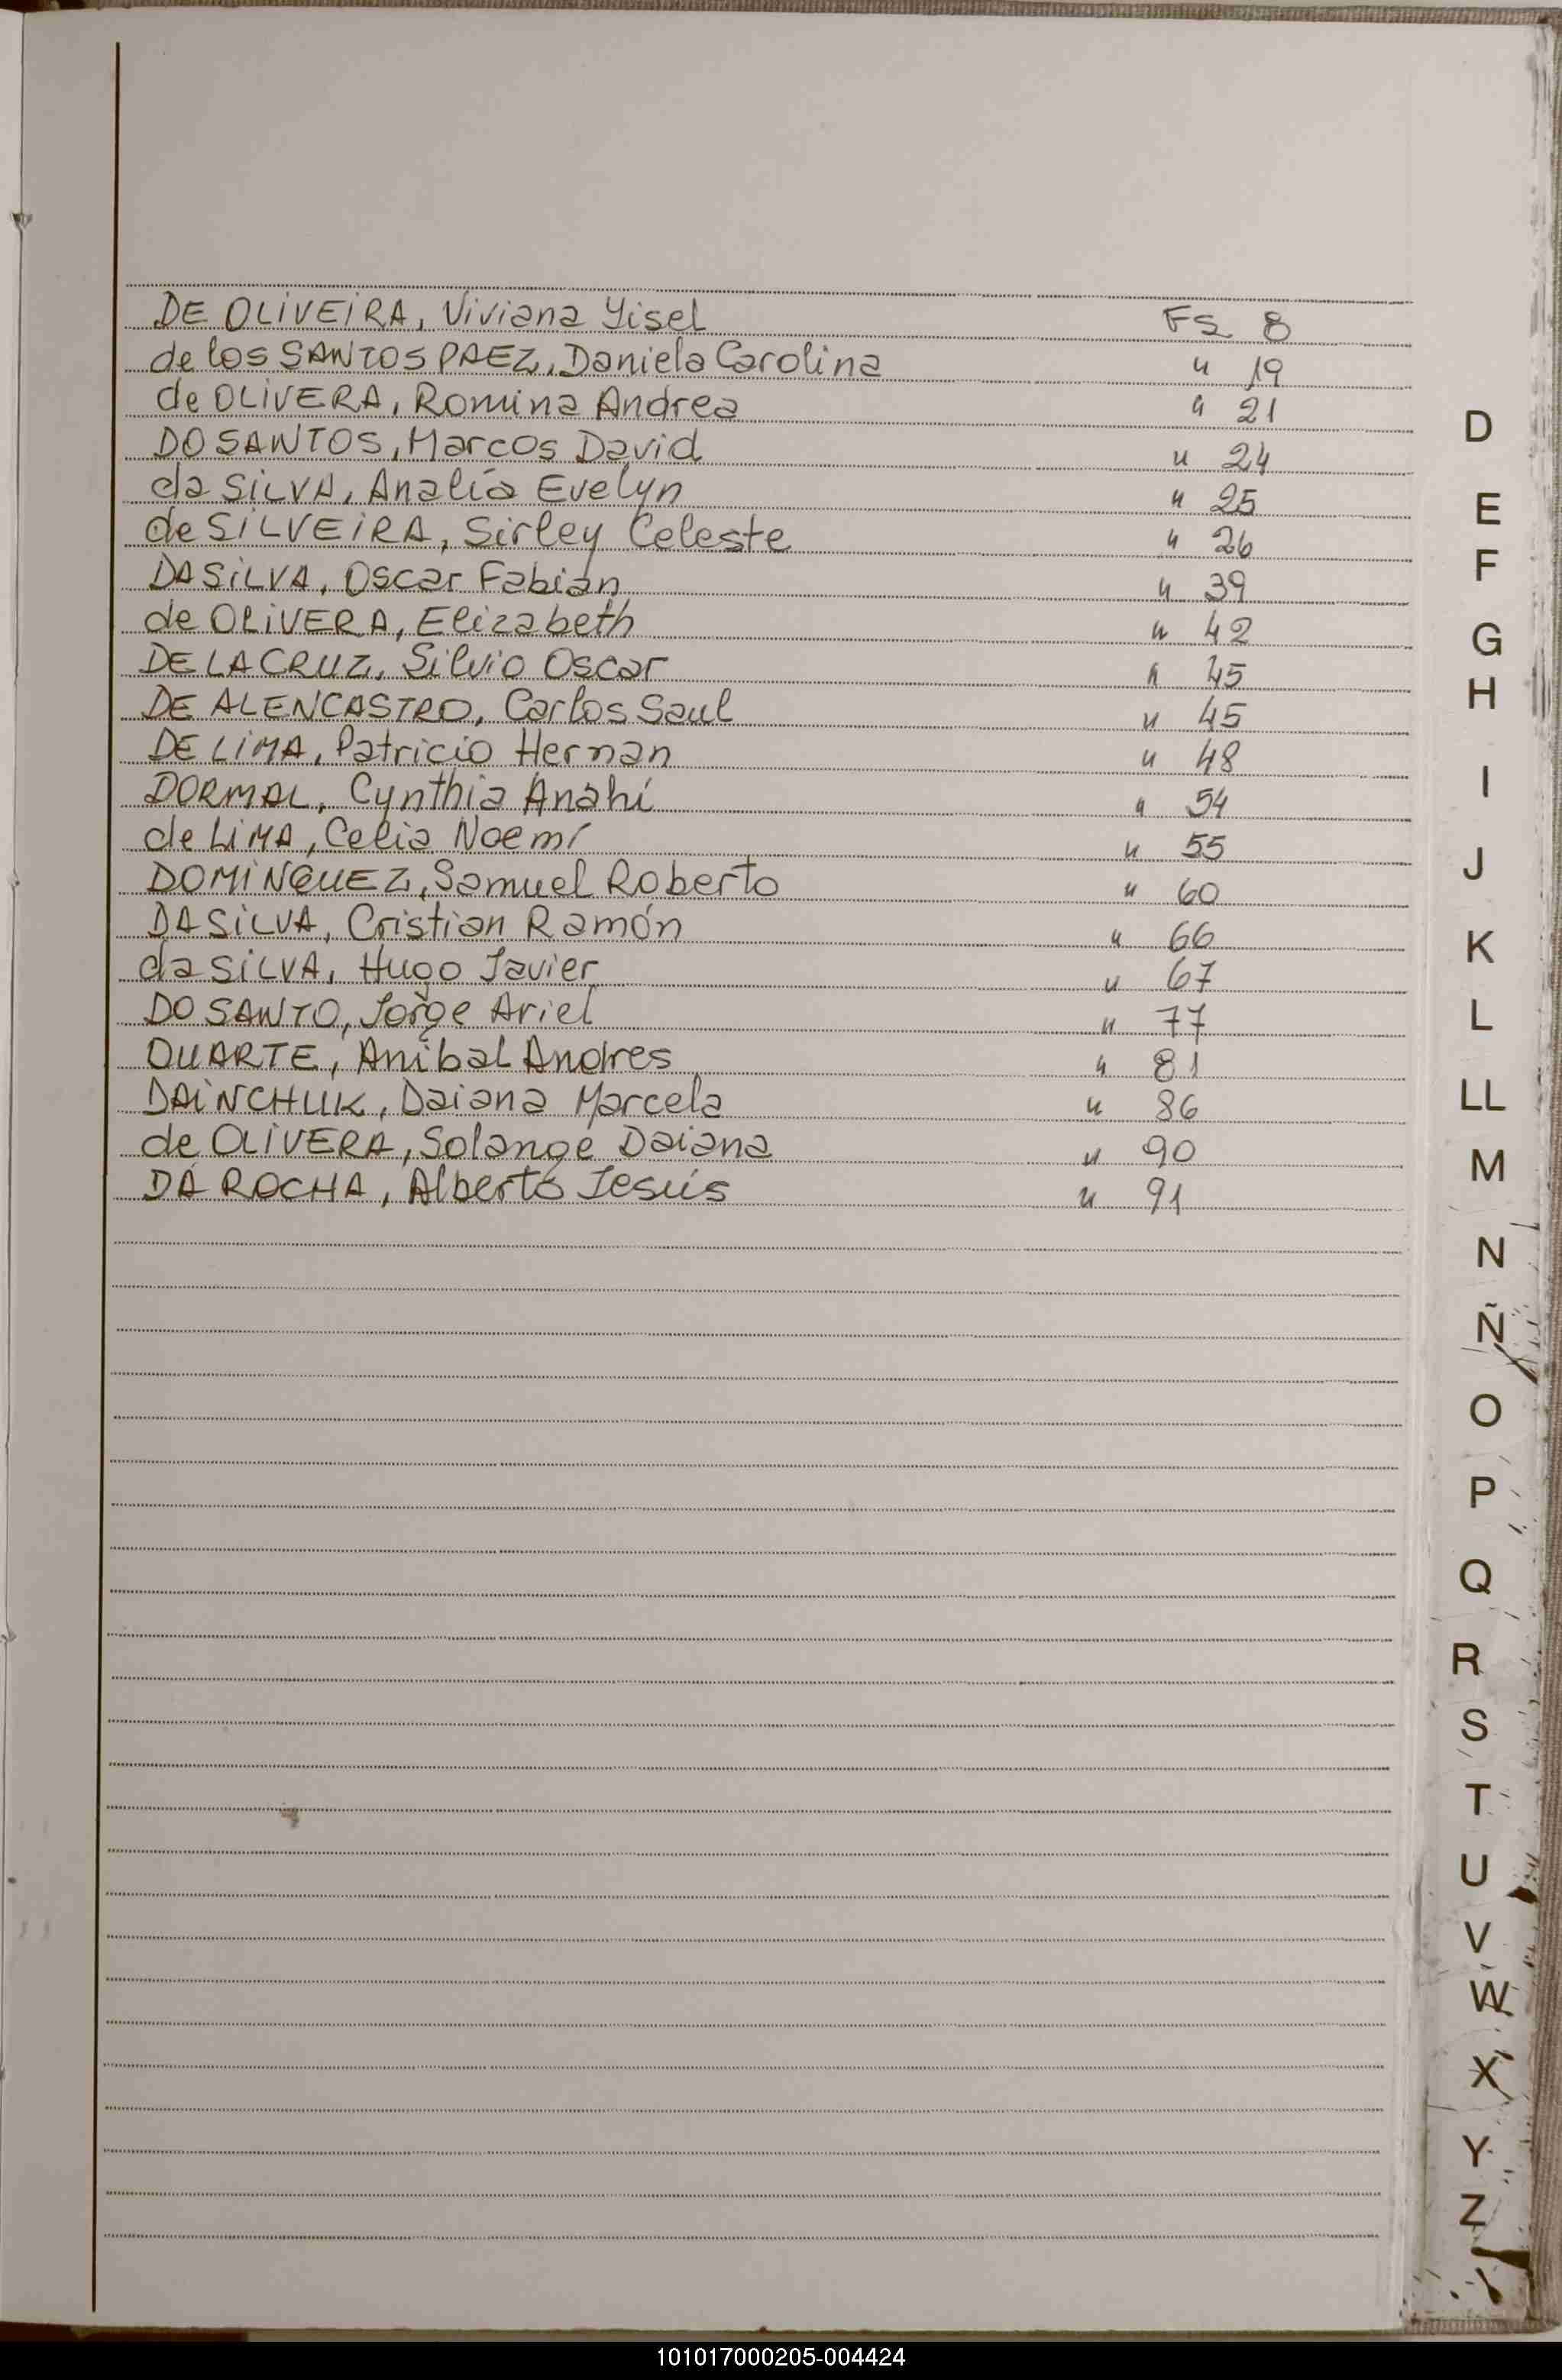 DE OLIVEIRA, Viviana Yisel Fs 8
de los SANTOS PAEZ, Daniela Carolina " 19
de OLIVERA, Romina Andrea " 21
DO SANTOS, Marcos David " 24
da SILVA, Analía Evelyn " 25
de SILVEIRA, Sirley Celeste " 26
DA SILVA, Oscar Fabián " 39
de OLIVERA, Elizabeth " 42
DE LA CRUZ, Silvio Oscar " 45
DE ALENCASTRO, Carlos Saul " 45
DE LIMA, Patricio Hernan " 48
DORMAL, Cynthia Anahí " 54
de LIMA, Celia Noemí " 55
DOMINGUEZ, Samuel Roberto " 60
DA SILVA, Cristian Ramón " 66
da SILVA, Hugo Javier " 67
DO SANTO, Jorge Ariel " 77
DUARTE, Anibal Andres " 81
DAINCHUK, Daiana Marcela " 86
de OLIVERA, Solange Daiana " 90
DA ROCHA, Alberto Jesús " 91
D
E
F
G
H
I
J
K
L
LL
M
N
Ñ
O
P
Q
R
S
T
U
V
W
X
Y
Z
101017000205-004424